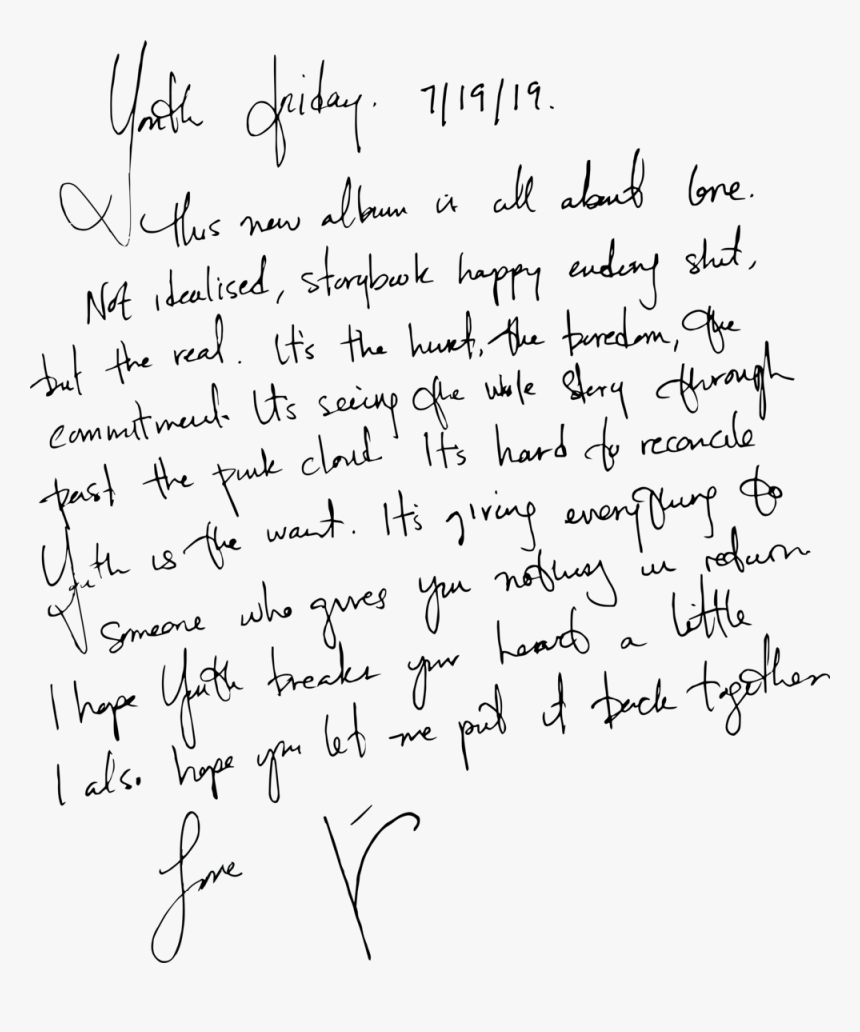 Youth friday. 7/19/19.
this new album is all about love.
Not idealised, storybook happy ending shit,
but the real. It's the hurt, the boredom, the
commitment. It's seeing the whole story through
past the pink cloud It's hard to reconcile
Youth is the want. It's giving everything to
someone who gives you nothing in return.
I hope Youth breaks your heart a little
I also hope you let me put it back together
Love